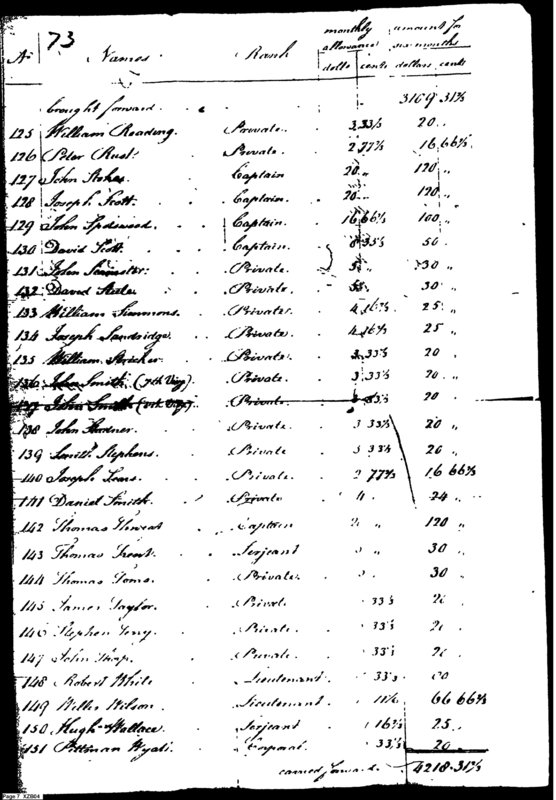 73
No Names Rank monthly allowance amount for six months
dolls cents dollars cents
brought forward 3169 31⅓
125 William Reading. Private. 3 33⅓ 20 "
126 Peter Rust Private. 2 77⅔ 16 66⅔
127 John Stokes Captain 20 " 120 "
128 Joseph Scott Captain. 20 " 120 "
129 John Spotswood Captain. 16 66⅔ 100 "
130 David Scott Captain. 8 33⅓ 50 "
131 John Private. 5 " 30 "
132 David Steele Private. 5 30 "
133 William Simmons. Private. 4 16⅔ 25 "
134 Joseph Sandridge Private. 4 16⅔ 25 "
135 William Stricker Private. 3 33⅓ 20 "
136 John Smith (7th Virg) Private. 3 33⅓ 20 "
137 John Smith Private. 3 33⅓ 20
138 John Private. 3 33⅓ 20 "
139 Smith Stephens Private 3 33⅓ 20 "
140 Joseph Sears Private. 2 77⅔ 16 66⅔
141 Daniel Smith. Private 4 24 "
142 Thomas Threat Captain 120 "
143 Thomas Trent. Serjeant " 30 "
144 Thomas Toms. Private. 30 "
145 James Taylor. Privat. 33⅓ 20
146 Stephen Terry Private. 33⅓ 20
147 John Private. 33⅓ 20
148 Robert White Lieutenant. 33⅓
149 Willis Wilson. Lieutenant 66 66⅔
150 Hugh Wallace. Serjeant 16⅔ 25 "
151 Pittman Wyatt Corporal 33⅓ 20
carried forward 4218 31⅓
Page 7 XZB64